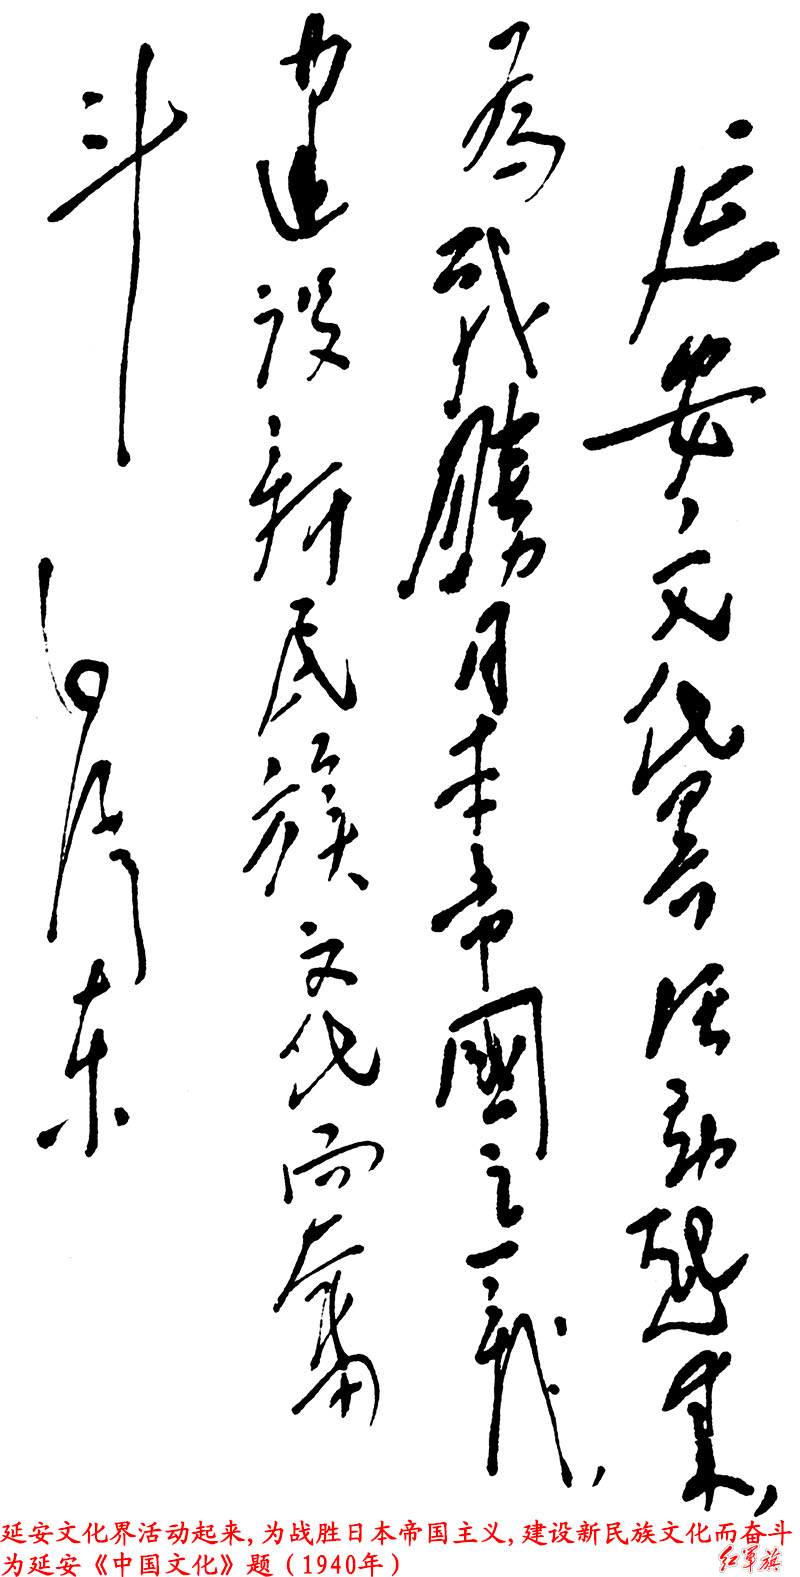 延安文化界活动起来，
為战勝日本帝國主義，
为建设新民族文化而奮
斗
毛泽东
延安文化界活动起来,为战胜日本帝国主义,建设新民族文化而奋斗
为延安《中国文化》题（1940年）
红军旗